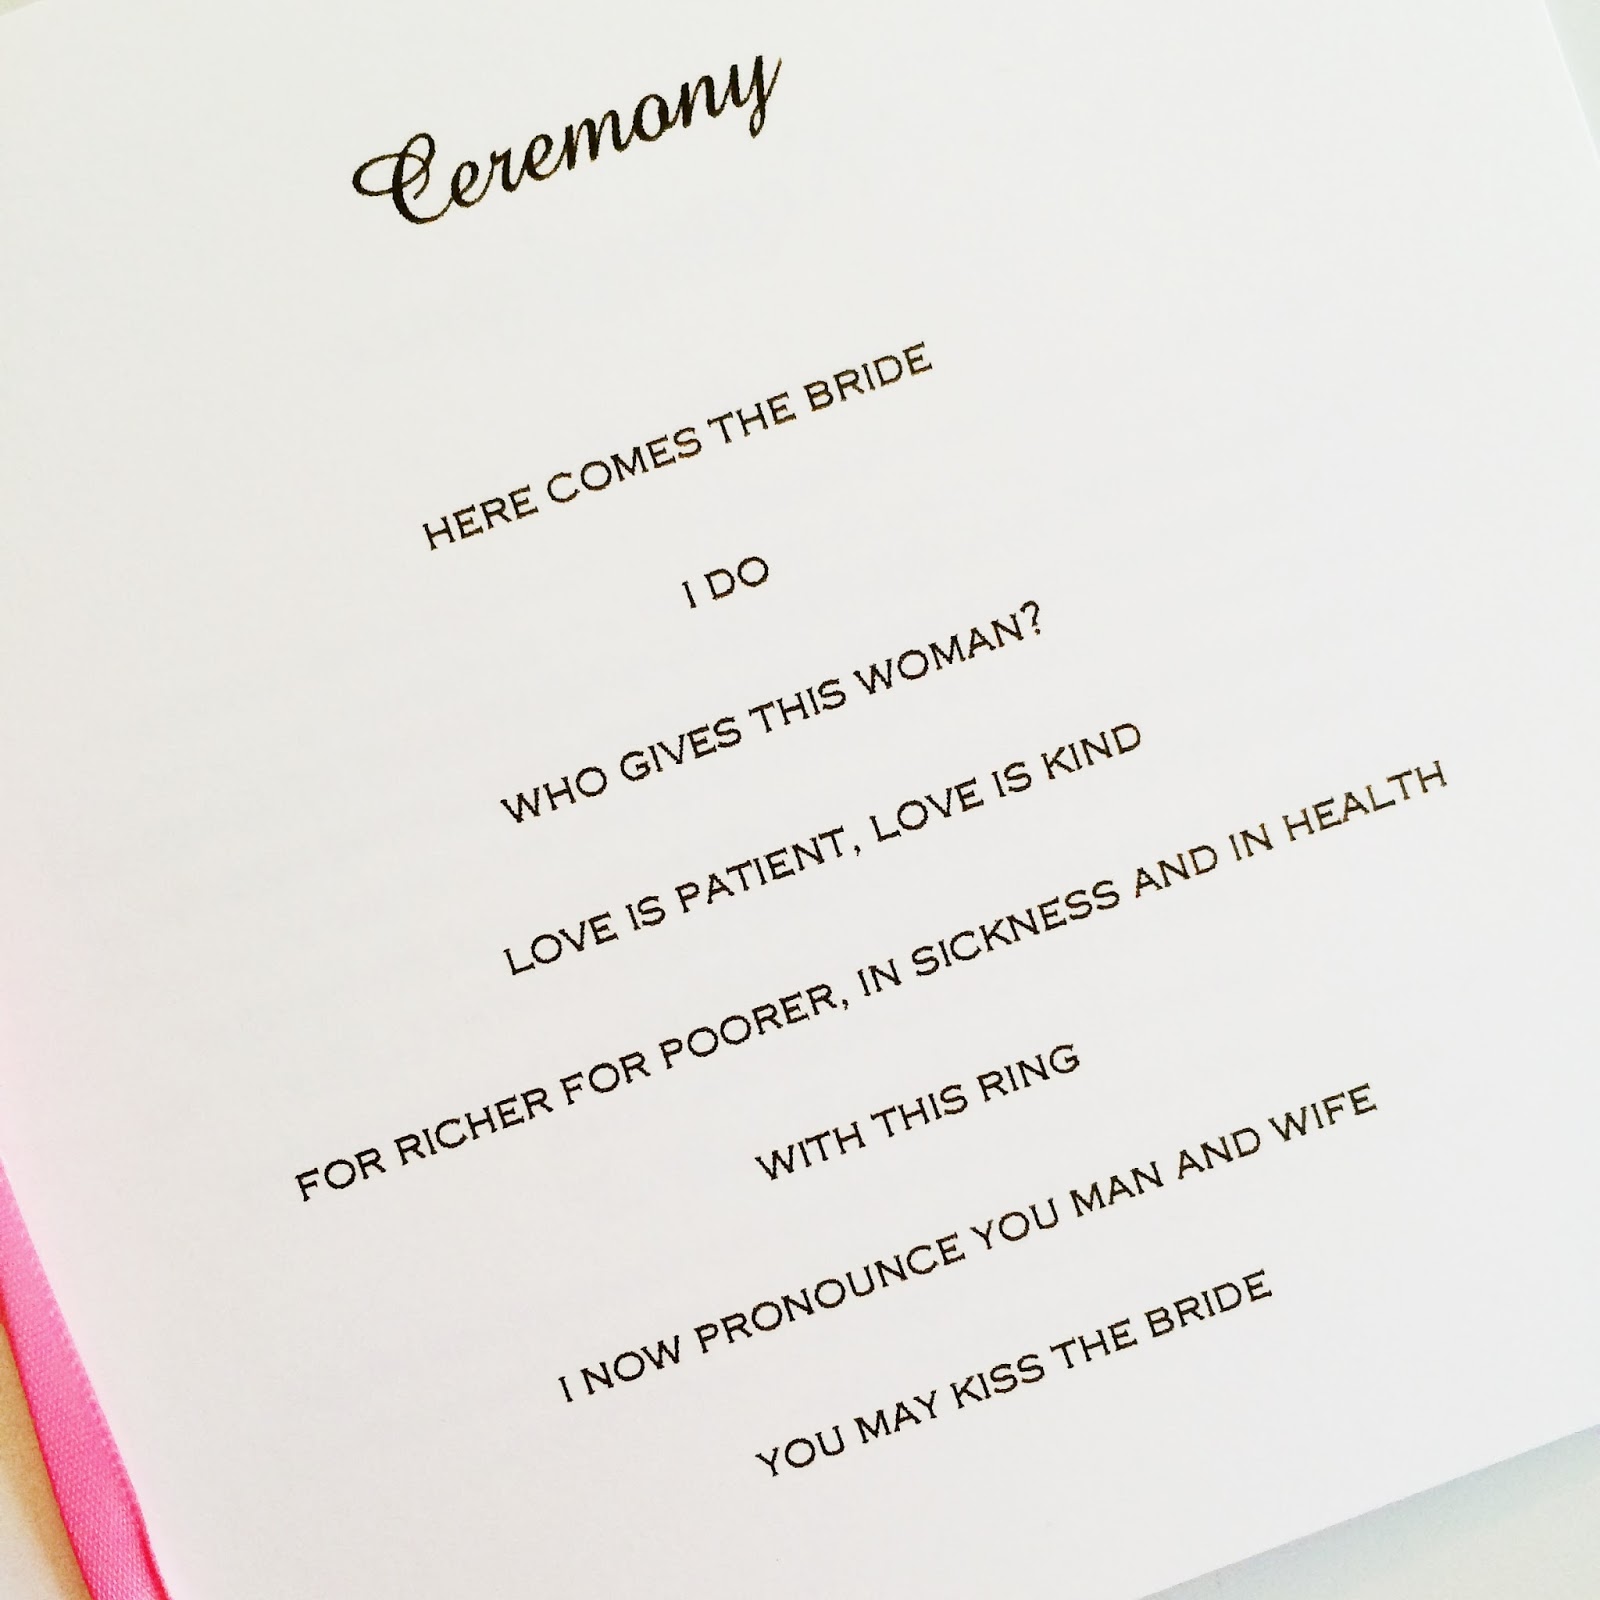 Ceremony
HERE COMES THE BRIDE
I DO
WHO GIVES THIS WOMAN?
LOVE IS PATIENT, LOVE IS KIND
FOR RICHER FOR POORER, IN SICKNESS AND IN HEALTH
WITH THIS RING
I NOW PRONOUNCE YOU MAN AND WIFE
YOU MAY KISS THE BRIDE